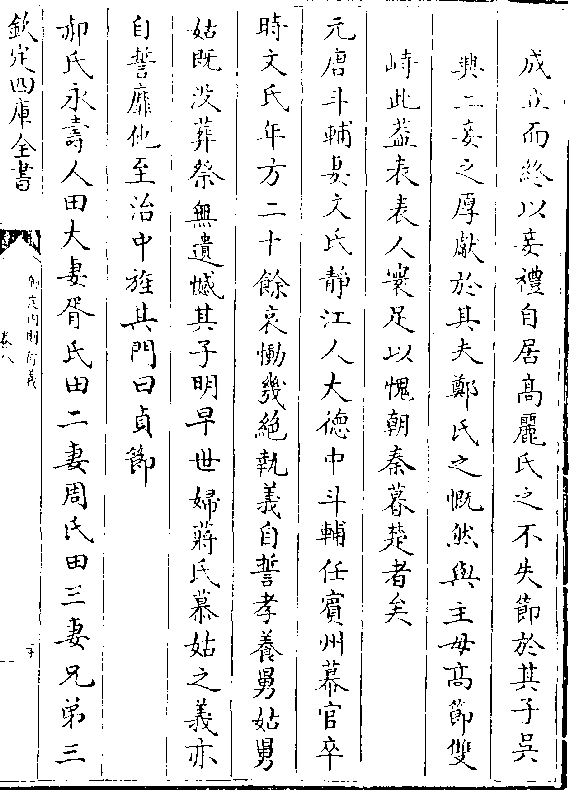 成立而終以妾禮自居高麗氏之不失節於其子吳
興二妾之厚獻於其夫鄭氏之慨然與主母高節雙
峙此蓋表表人寰足以愧朝秦暮楚者矣
元唐斗輔妻文氏靜江人大德中斗輔任賓州幕官卒
時文氏年方二十餘哀慟幾絶執義自誓孝養舅姑舅
姑既没葬祭無遺憾其子明早世婦蔣氏慕姑之義亦
自誓靡他至治中旌其門曰貞節
郝氏永壽人田大妻胥氏田二妻周氏田三妻兄弟三
欽定四庫全書
御定内則衍義
卷八